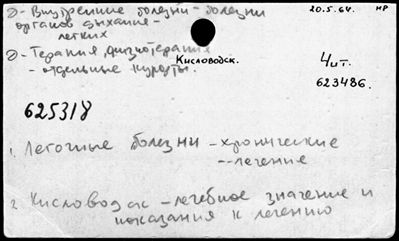 Э- Внутренние болезни - болезни
20.5.64. НР
органов дыхание -
легких
Э- Терапия, физиотерапия
- отдельные курорты. Кисловодск.
4 чит.
623486.
625318
1. Легочные болезни - хронические
-- лечение
2. Кисловодск - лечебное значение и
показания к лечению